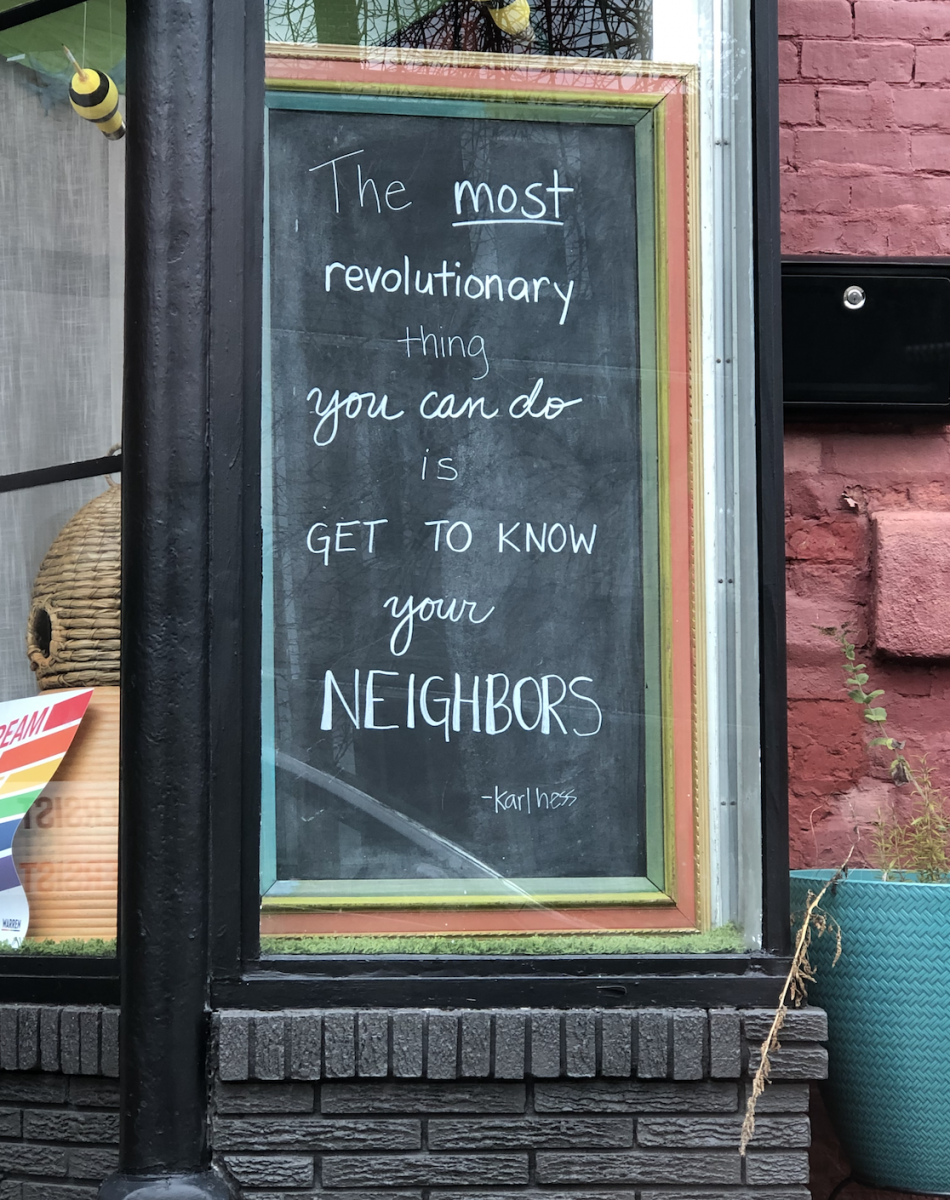 The most
revolutionary
thing
you can do
is
GET TO KNOW
your
NEIGHBORS
-karl hess
WARREN